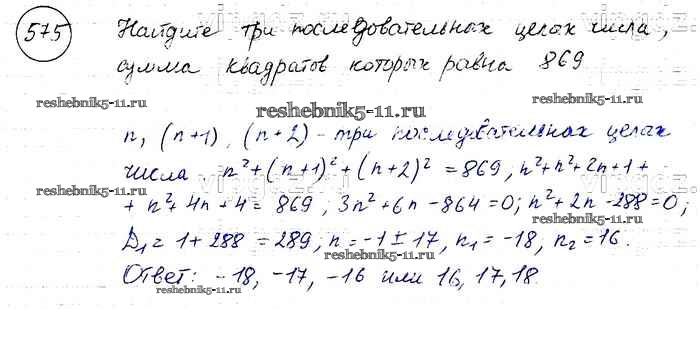 575 Найдите три последовательных целых числа,
сумма квадратов которых равна 869
reshebnik5-11.ru reshebnik5-11.ru
reshebnik5-11.ru
n, (n+1), (n+2) - три последовательных целых
числа. n²+(n+1)²+(n+2)² = 869, n²+n²+2n+1+
reshebnik5-11.ru reshebnik5-11.ru
+ n²+4n+4 = 869, 3n²+6n-864=0; n²+2n-288=0;
D₁ = 1+288 = 289, n = -1±17, n₁ = -18, n₂ = 16.
reshebnik5-11.ru
Ответ: -18, -17, -16 или 16, 17, 18.
reshebnik5-11.ru reshebnik5-11.ru